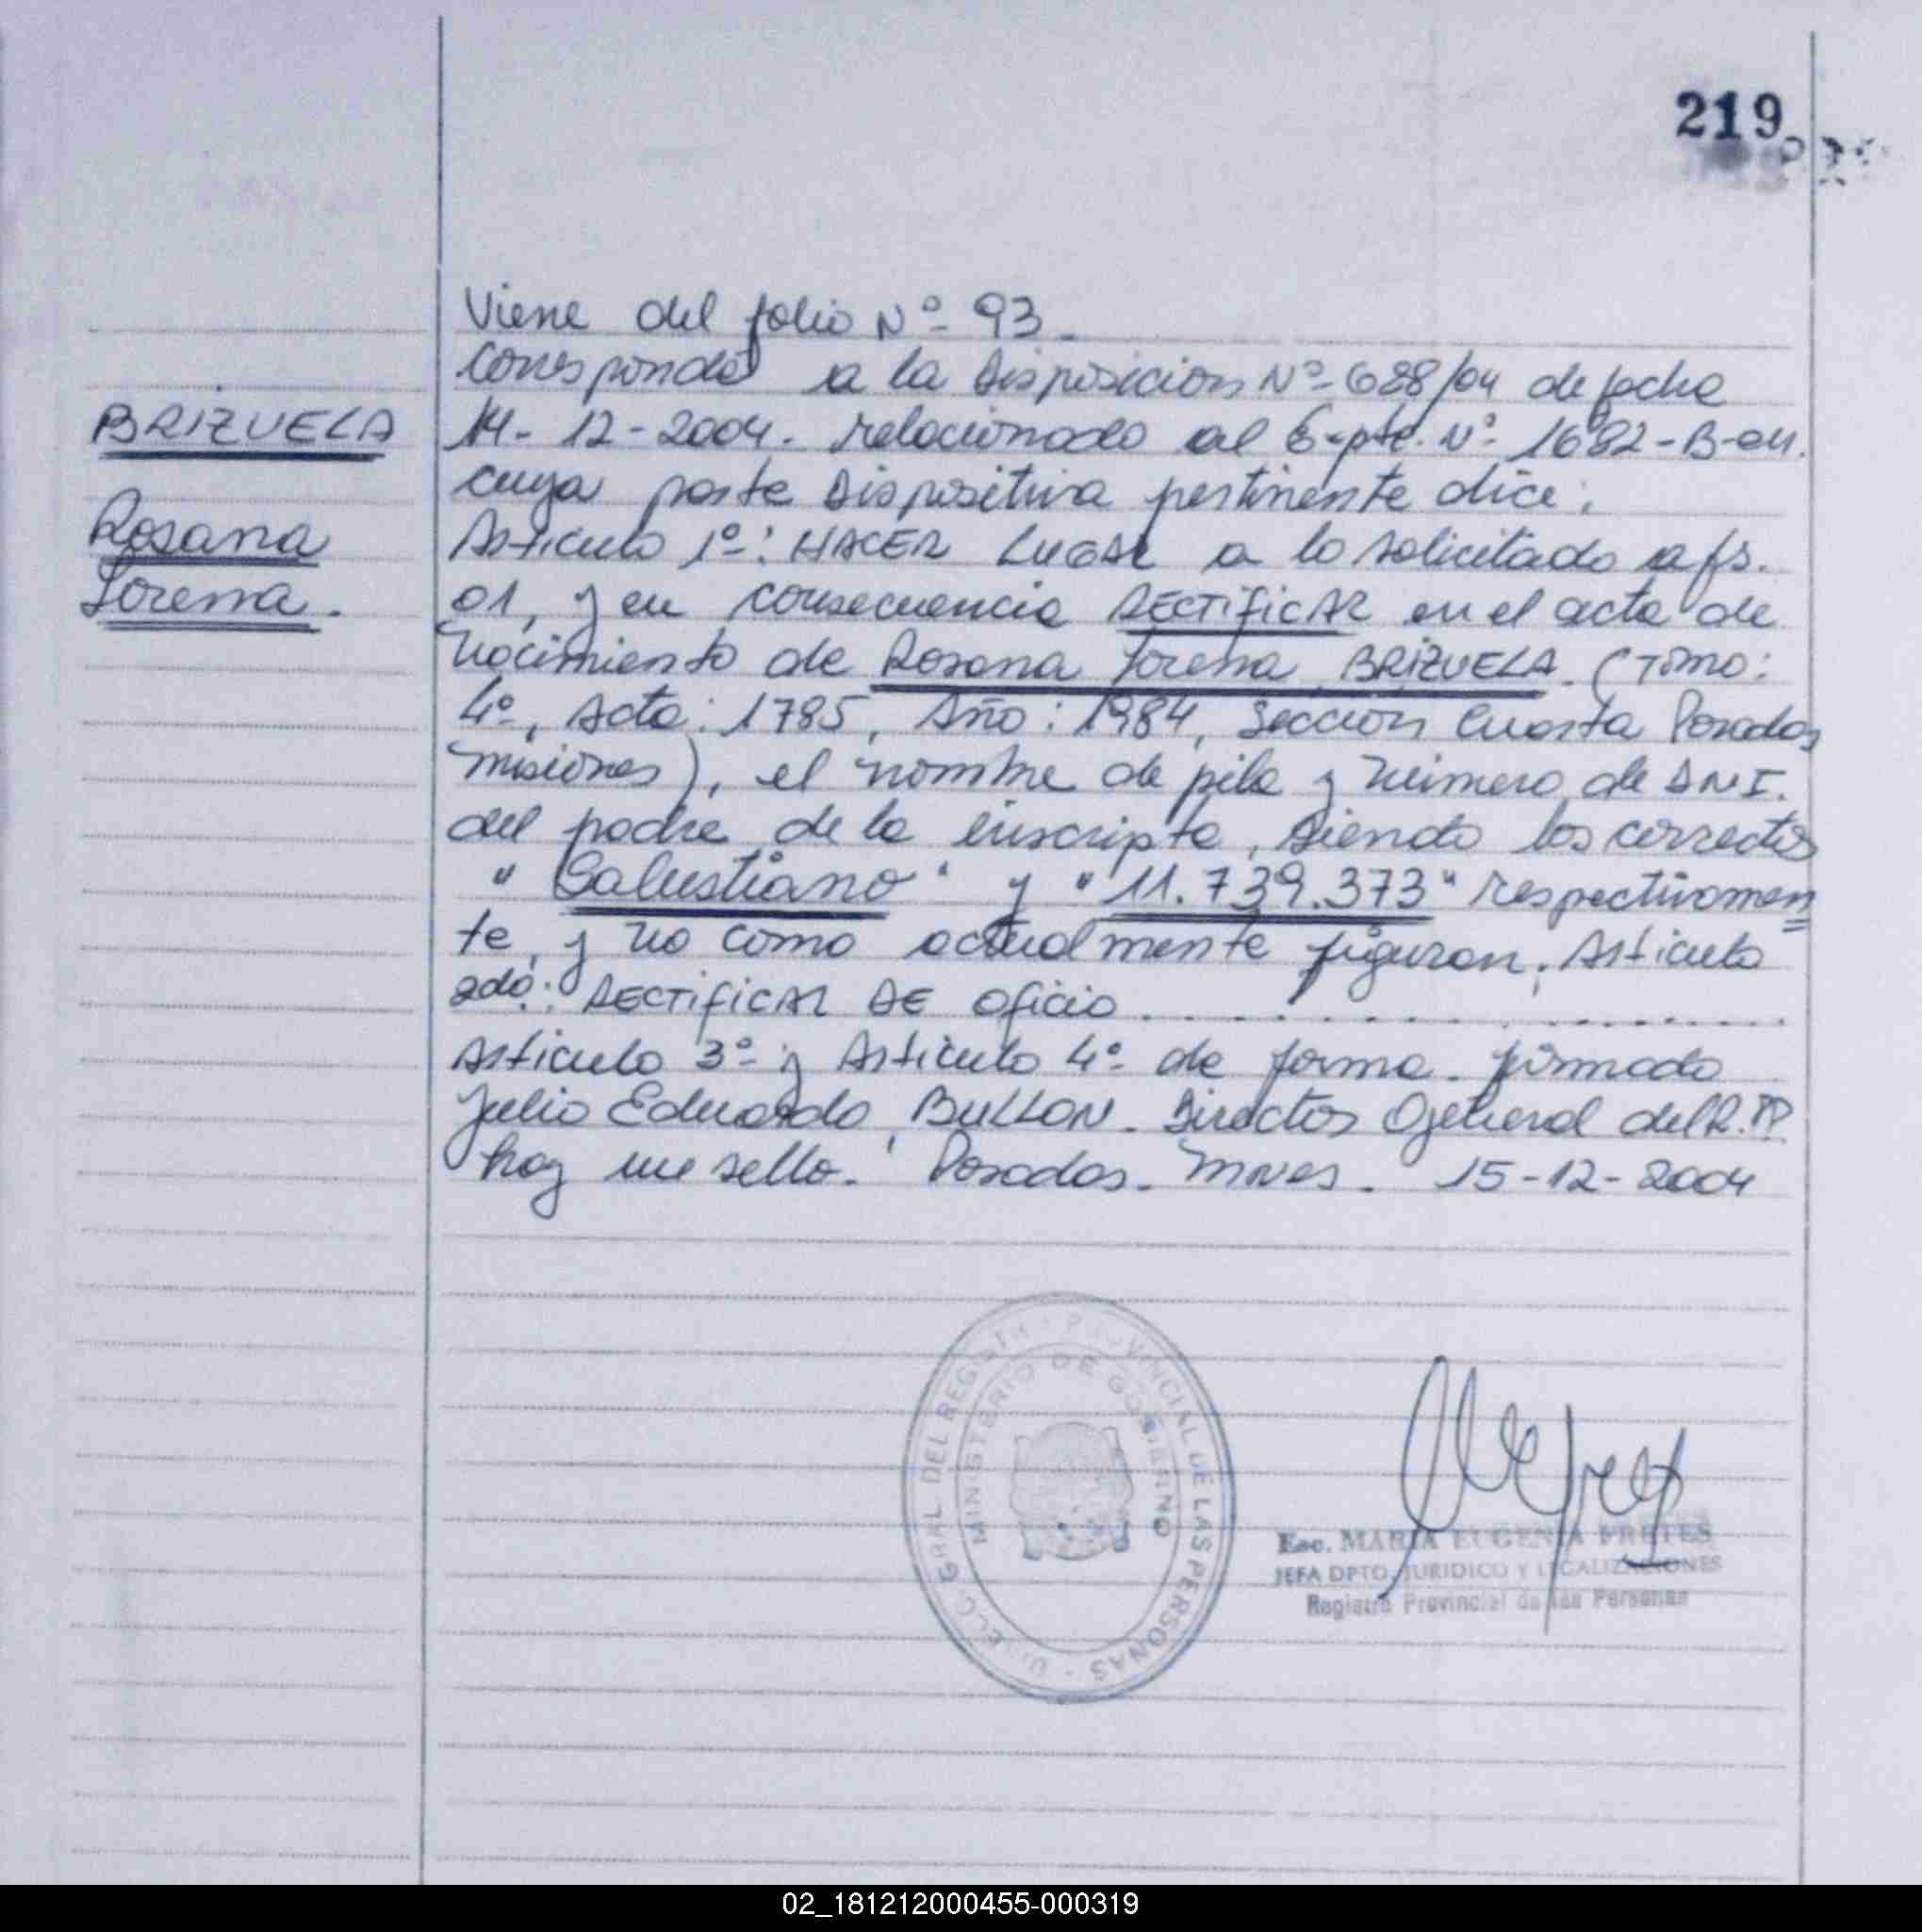 219
Viene del folio Nº 93.
Corresponde a la Disposicion Nº 688/04 de fecha
BRIZUELA
14-12-2004. relacionado al Expte. Nº 1682-B-04.
cuya parte Dispositiva pertinente dice:
Rosana
Articulo 1º: HACER LUGAR a lo solicitado a fs.
Lorena.
01, y en consecuencia RECTIFICAR en el acta de
nacimiento de Rosana Lorena BRIZUELA. (Tomo:
4º, Acta: 1785, Año: 1984, Seccion Cuarta Posadas
misiones), el nombre de pila y número de DNI.
del padre de la inscripta, siendo los correctos
"Salustiano" y "11.739.373" respectivamen
te, y no como actualmente figuran. Articulo
2do: RECTIFICAR DE Oficio..............
Articulo 3º y Articulo 4º de forma. firmado
Julio Eduardo BULLON. Director General del R.P.
hay un sello. Posadas. Mnes. 15-12-2004
DIRECC. GRAL DEL REGISTRO PROVINCIAL DE LAS PERSONAS -
MINISTERIO DE GOBIERNO
Esc. MARIA EUGENIA PRETES
JEFA DPTO. JURIDICO Y LEGALIZACIONES
Registro Provincial de las Personas
02_181212000455-000319